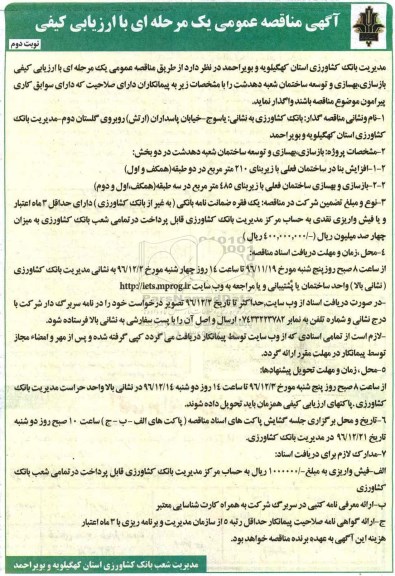 آگهی مناقصه عمومی یک مرحله ای با ارزیابی کیفی
نوبت دوم
مدیریت بانک کشاورزی استان کهگیلویه و بویراحمد در نظر دارد از طریق مناقصه عمومی یک مرحله ای با ارزیابی کیفی
بازسازی،بهسازی و توسعه ساختمان شعبه دهدشت را با مشخصات زیر به پیمانکاران دارای صلاحیت که دارای سوابق کاری
پیرامون موضوع مناقصه باشند واگذار نماید.
۱-نام ونشانی مناقصه گذار: بانک کشاورزی به نشانی: یاسوج-خیابان پاسداران (ارتش) روبروی گلستان دوم-مدیریت بانک
کشاورزی استان کهگیلویه و بویراحمد
۲-مشخصات پروژه: بازسازی،بهسازی و توسعه ساختمان شعبه دهدشت در دو بخش:
۲-۱-افزایش بنا در ساختمان فعلی با زیربنای ۲۱۰ متر مربع در دو طبقه(همکف و اول)
۲-۲-بازسازی و بهسازی ساختمان فعلی با زیربنای ۴۸۵ متر مربع در سه طبقه(همکف،اول و دوم)
۳-نوع و مبلغ تضمین شرکت در مناقصه: یک فقره ضمانت نامه بانکی ( به غیر از بانک کشاورزی ) دارای حداقل ۳ ماه اعتبار
و یا فیش واریزی نقدی به حساب مرکز مدیریت بانک کشاورزی قابل پرداخت درتمامی شعب بانک کشاورزی به میزان
چهار صد میلیون ریال (-/۴۰۰,۰۰۰,۰۰۰ ریال )
۴-محل،زمان و مهلت دریافت اسناد مناقصه:
از ساعت ۸ صبح روز پنج شنبه مورخ ۹۶/۱۱/۱۹ تا ساعت ۱۴ روز چهار شنبه مورخ ۹۶/۱۲/۲ به نشانی مدیریت بانک کشاورزی
( نشانی بالا ) واحد ساختمان یا پشتیبانی و یا مراجعه به وب سایت http://iets.mprog.ir
-در صورت دریافت اسناد از وب سایت،حداکثر تا تاریخ ۹۶/۱۲/۲ تصویر درخواست خود را در نامه سربرگ دار شرکت با
درج نشانی و شماره تلفن به نمابر ۰۷۴۳۳۲۲۳۷۸۲ ارسال و اصل آن را با پست سفارشی به نشانی بالا فرستاده شود.
-لازم است از تمامی اسنادی که از وب سایت توسط پیمانکار دریافت می گردد کپی گرفته شده و پس از مهر و امضاء مجاز
توسط پیمانکار در مهلت مقرر ارائه گردد.
۵-محل ، زمان و مهلت تحویل پیشنهادها:
از ساعت ۸ صبح روز پنج شنبه مورخ ۹۶/۱۲/۳ تا ساعت ۱۴ روز دو شنبه ۹۶/۱۲/۱۴ در نشانی بالا واحد حراست مدیریت بانک
کشاورزی .پاکتهای ارزیابی کیفی همزمان باید تحویل داده شوند.
۶-تاریخ و محل برگزاری جلسه گشایش پاکت های اسناد مناقصه ( پاکت های الف - ب - ج ) ساعت ۱۰ صبح روز دو شنبه
تاریخ ۹۶/۱۲/۲۱ در مدیریت بانک کشاورزی.
۷-مدارک لازم برای دریافت اسناد:
الف-فیش واریزی به مبلغ-/۱۰۰۰۰۰۰ ریال به حساب مرکز مدیریت بانک کشاورزی قابل پرداخت در تمامی شعب بانک
کشاورزی
ب-ارائه معرفی نامه کتبی در سربرگ شرکت به همراه کارت شناسایی معتبر
ج-ارائه گواهی نامه صلاحیت پیمانکار حداقل رتبه ۵ از سازمان مدیریت و برنامه ریزی با ۳ ماه اعتبار
هزینه این آگهی به عهده برنده مناقصه خواهد بود.
مدیریت شعب بانک کشاورزی استان کهگیلویه و بویراحمد